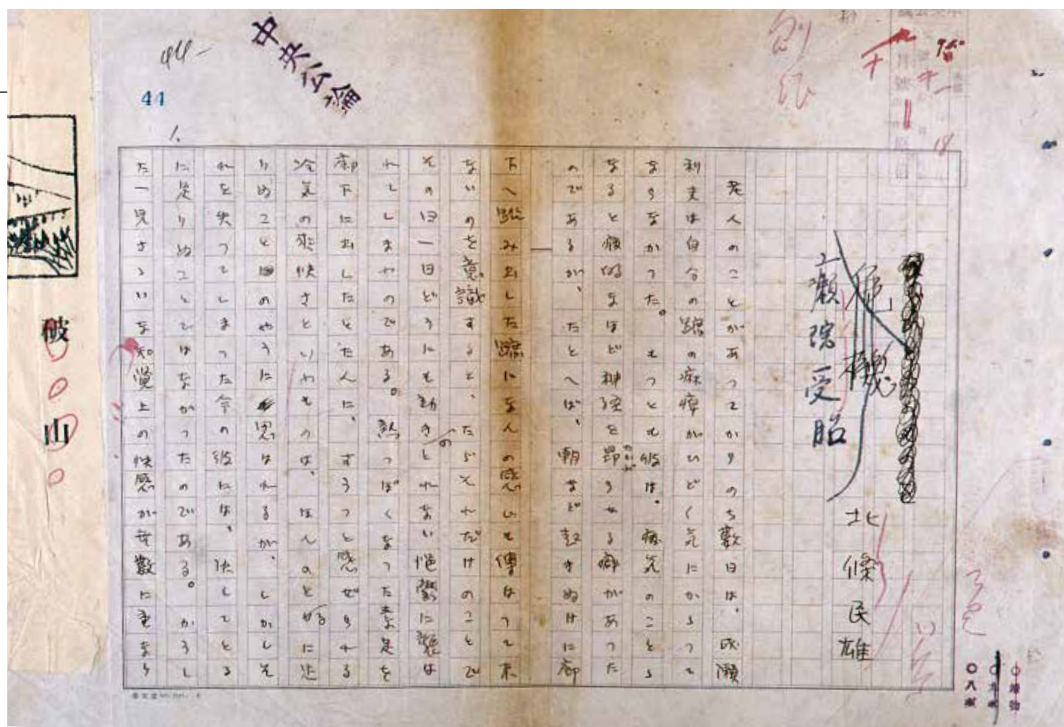 中央公論
44-
44
1.
癩院受胎
北條民雄
老人のことがあつてからのち数日は、成瀬
利夫は自分の蹠の麻痺がひどく気にかかつて
ならなかつた。もつとも彼は、病気のこととと
なると病的なほど神経を昂らせる癖があつた
のであるが、たとへば、朝など起きぬけに廊
下へ踏み出した蹠になんの感じも傳はつて来
ないのを意識すると、ただそれだけのことで
その日一日どうにも動きのとれない憂鬱に襲は
れてしまふのである。熱つぽくなつた素足を
廊下に出したとたんに、すうつと感ぜられる
冷気の爽快さといふものは、ほんのとるに足
りぬことのやうに思はれるが、しかしそ
れを失つてしまつた今の彼には、決してとる
に足りぬことではなかつたのである。かうし
た一見ささいな知覚上の快感が無数に重なり
破
山